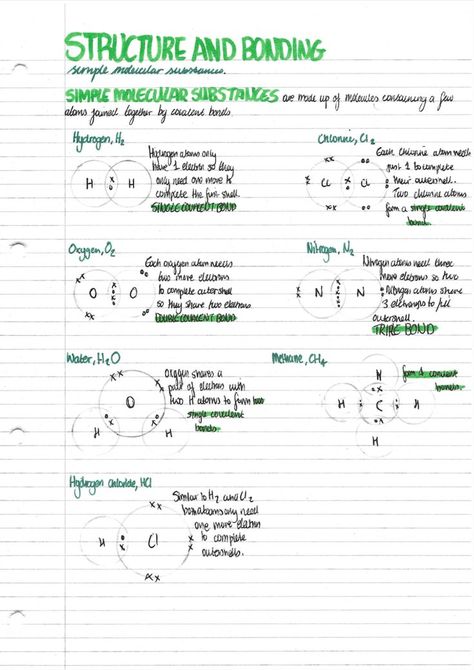 STRUCTURE AND BONDING
simple molecular substances.
SIMPLE MOLECULAR SUBSTANCES are made up of molecules containing a few
atoms joined together by covalent bonds
Hydrogen, H2
H H
Hydrogen atoms only
have 1 electron so they
only need one more to
complete the first shell
SINGLE COVALENT BOND
Chlorine, Cl2
Cl Cl
Each chlorine atom needs
just 1 to complete
their outershell.
Two chlorine atoms
form a single covalent
bond.
Oxygen, O2
O O
Each oxygen atom needs
two more electrons
to complete outer shell
so they share two electrons
DOUBLE COVALENT BOND
Nitrogen, N2
N N
Nitrogen atoms need three
more electrons so two
Nitrogen atoms share
3 electrons to fill
outershell.
TRIPLE BOND
Water, H2O
O
H H
oxygen shares a
pair of electrons with
two H atoms to form two
single covalent
bonds.
Methane, CH4
H
H C H
H
form 4 covalent
bonds.
Hydrogen chloride, HCl
H Cl
Similar to H2 and Cl2
both atoms only need
one more electron
to complete
outershells.